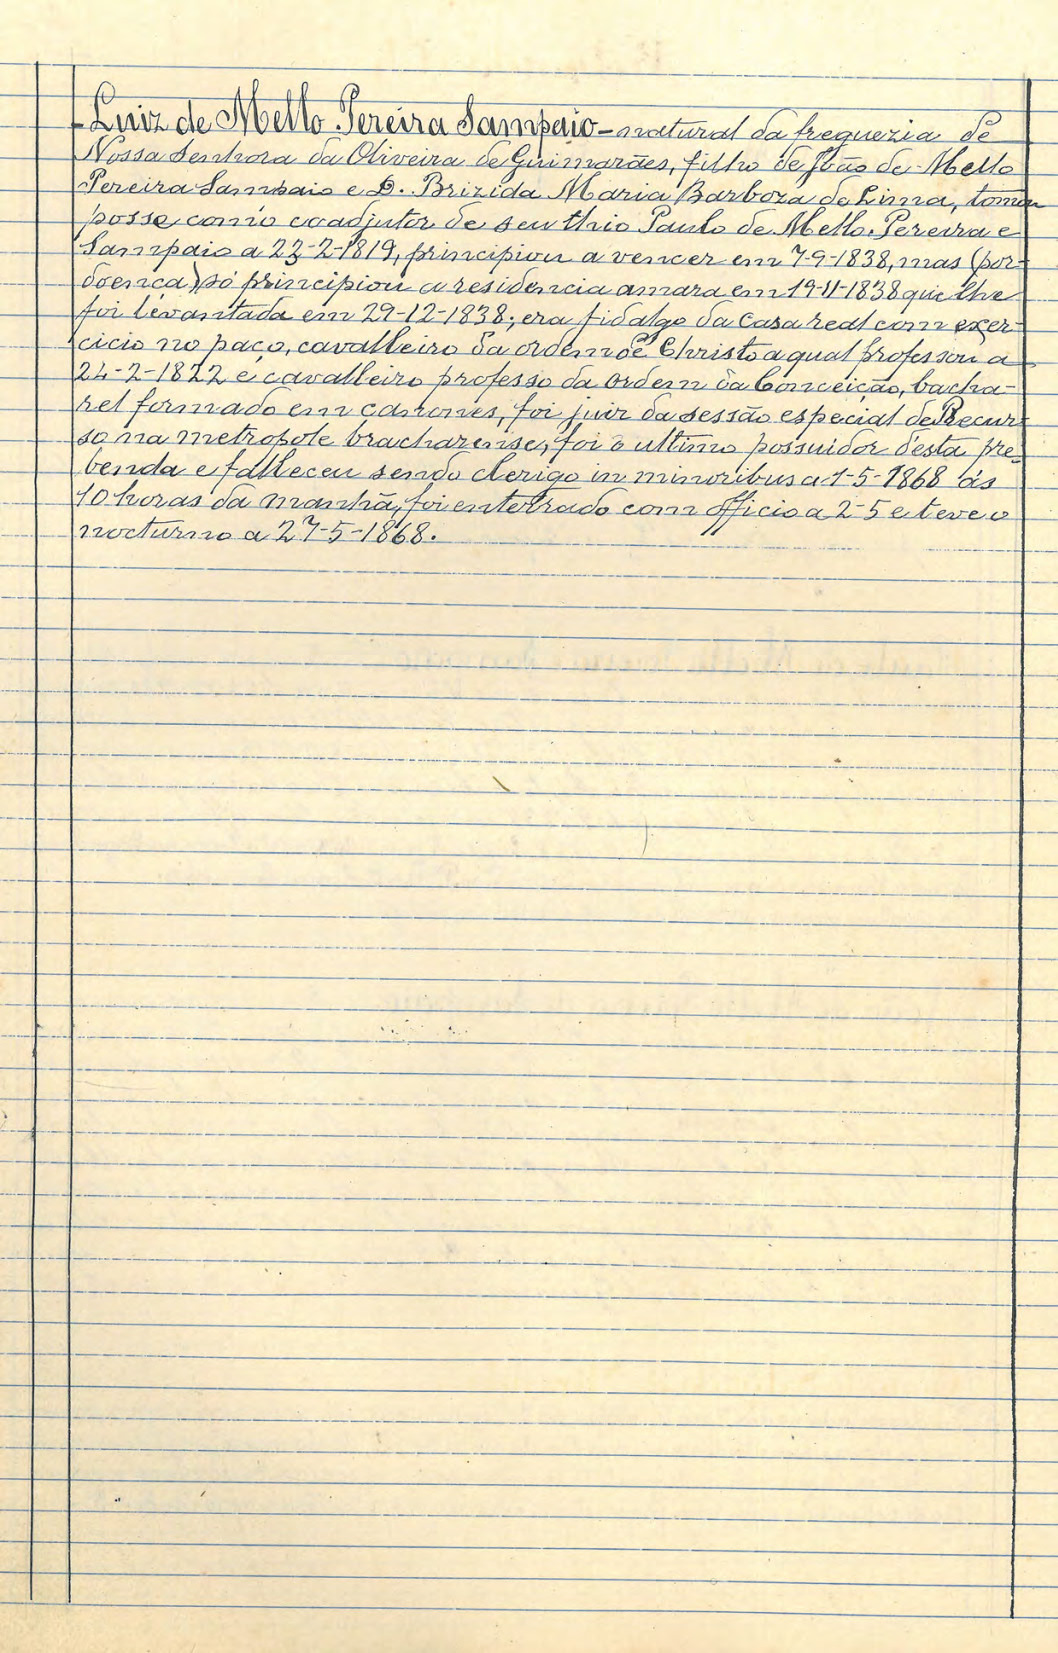 -Luiz de Mello Pereira Sampaio-natural da freguezia de
Nossa Senhora da Oliveira de Guimarães, filho de João de Mello
Pereira Sampaio e D. Brizida Maria Barboza de Lima, tomou
posse como coadjutor de seu thio Paulo de Mello Pereira e
Sampaio a 22-2-1819, principiou a vencer em 7-9-1838, mas (por
doença) só principiou a residencia amara em 19-11-1838 que lhe
foi levantada em 29-12-1838; era fidalgo da casa real com exer-
cicio no paço, cavalleiro da ordem de Christo a qual professou a
24-2-1822 e cavalleiro professo da ordem da Conceição, bacha-
rel formado em canones, foi juiz da sessão especial de Recur-
so na metropole bracharense, foi o ultimo possuidor d'esta pre-
benda e falleceu sendo clerigo in minoribus a 1-5-1868 ás
10 horas da manhã, foi enterrado com officio a 2-5 e teve o
nocturno a 27-5-1868.